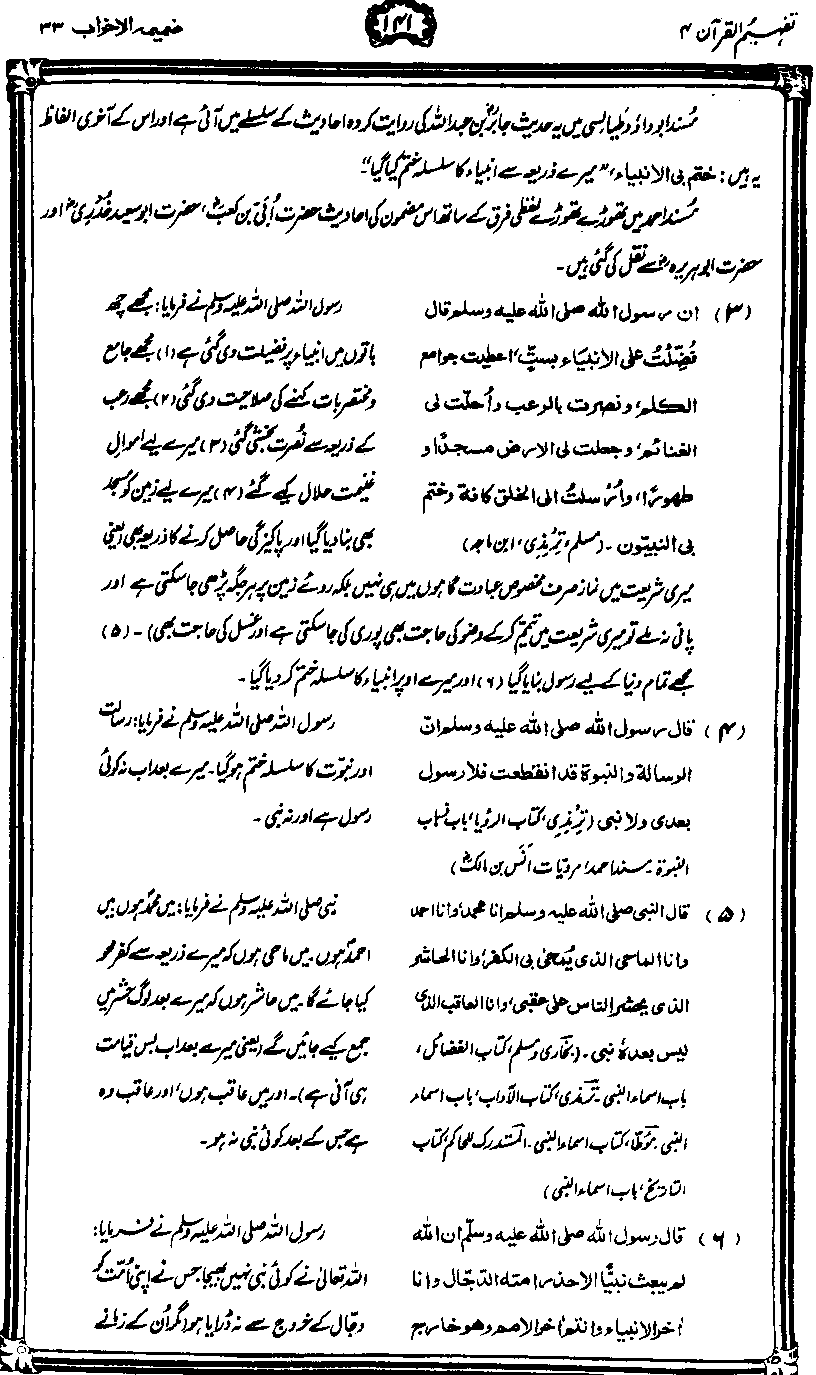 تفہیم القرآن ۴
۱۴۱
ضمیمہ الاحزاب ۳۳
مُسند ابو داؤد طیالسی میں یہ حدیث جابرؓ بن عبداللہ کی روایت کردہ احادیث کے سلسلے میں آئی ہے اور اس کے آخری الفاظ
یہ ہیں: ختم بی الانبیاء، ”میرے ذریعہ سے انبیاء کا سلسلہ ختم کیا گیا“۔
مُسند احمد میں تھوڑے تھوڑے لفظی فرق کے ساتھ اس مضمون کی احادیث حضرت اُبَیّ بن کعبؓ، حضرت ابو سعید خُدْرِیؓ اور
حضرت ابو ہریرہؓ سے نقل کی گئی ہیں۔
(۳) ان رسول اللہ صلی اللہ علیہ وسلم قال
فُضِّلْتُ علی الانبیاء بستٍّ، اعطیت جوامع
الکلم، و نصرت بالرعب و اُحلّت لی
الغنائم، و جعلت لی الارض مسجدًا و
طهورًا، واُرْسلتُ الی الخلق کافة و ختم
بی النبیّون ۔ (مسلم، ترمذی، ابن ماجہ)
رسول اللہ صلی اللہ علیہ وسلم نے فرمایا: مجھے چھ
باتوں میں انبیاء پر فضیلت دی گئی ہے (۱) مجھے جامع
و مختصر بات کہنے کی صلاحیت دی گئی (۲) مجھے رعب
کے ذریعہ سے نُصرت بخشی گئی (۳) میرے لیے اموالِ
غنیمت حلال کیے گئے (۴) میرے لیے زمین کو مسجد
بھی بنا دیا گیا اور پاکیزگی حاصل کرنے کا ذریعہ بھی (یعنی
میری شریعت میں نماز صرف مخصوص عبادت گاہوں میں ہی نہیں بلکہ روئے زمین پر ہر جگہ پڑھی جا سکتی ہے اور
پانی نہ ملے تو میری شریعت میں تیمّم کر کے وضو کی حاجت بھی پوری کی جا سکتی ہے اور غسل کی حاجت بھی) ۔ (۵)
مجھے تمام دنیا کے لیے رسول بنایا گیا (۶) اور میرے اوپر انبیاء کا سلسلہ ختم کر دیا گیا۔
(۴) قال رسول اللہ صلی اللہ علیہ وسلم انّ
الرسالة والنبوة قد انقطعت فلا رسول
بعدی ولا نبی (ترمذی، کتاب الرؤیا، باب ذہاب
النبوة ۔ مسند احمد، مرویات انَس بن مالکؓ)
رسول اللہ صلی اللہ علیہ وسلم نے فرمایا: رسالت
اور نبوّت کا سلسلہ ختم ہو گیا۔ میرے بعد اب نہ کوئی
رسول ہے اور نہ نبی ۔
(۵) قال النبی صلی اللہ علیہ وسلم انا محمد، وانا احمد
وانا الماحی الذی یُمحٰی بی الکفر، وانا الحاشر
الذی یحشر الناس علی عقبی، وانا العاقب الذی
لیس بعدہٗ نبی ۔ (بخاری و مسلم، کتاب الفضائل،
باب اسماء النبی ۔ ترمذی، کتاب الآداب، باب اسماء
النبی ۔ مؤطا، کتاب اسماء النبی ۔ المستدرک للحاکم، کتاب
التاریخ، باب اسماء النبی)
نبی صلی اللہ علیہ وسلم نے فرمایا: میں محمدؐ ہوں میں
احمدؐ ہوں۔ میں ماحی ہوں کہ میرے ذریعہ سے کفر محو
کیا جائے گا۔ میں حاشر ہوں کہ میرے بعد لوگ حشر میں
جمع کیے جائیں گے (یعنی میرے بعد اب بس قیامت
ہی آنی ہے)۔ اور میں عاقب ہوں، اور عاقب وہ
ہے جس کے بعد کوئی نبی نہ ہو۔
(۶) قال رسول اللہ صلی اللہ علیہ وسلّم ان اللہ
لم یبعث نبیًّا الا حذر امتہ الدّجّال و انا
اٰخر الانبیاء و انتم اٰخر الامم وهو خارج
رسول اللہ صلی اللہ علیہ وسلم نے فرمایا:
اللہ تعالیٰ نے کوئی نبی نہیں بھیجا جس نے اپنی اُمّت کو
دجّال کے خروج سے نہ ڈرایا ہو (مگر اُن کے زمانے